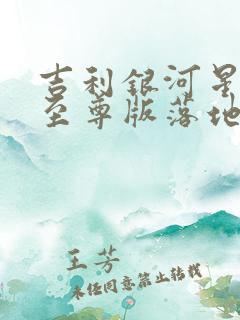 吉利银河星
至尊版落地
王芳
未经同意禁止转载